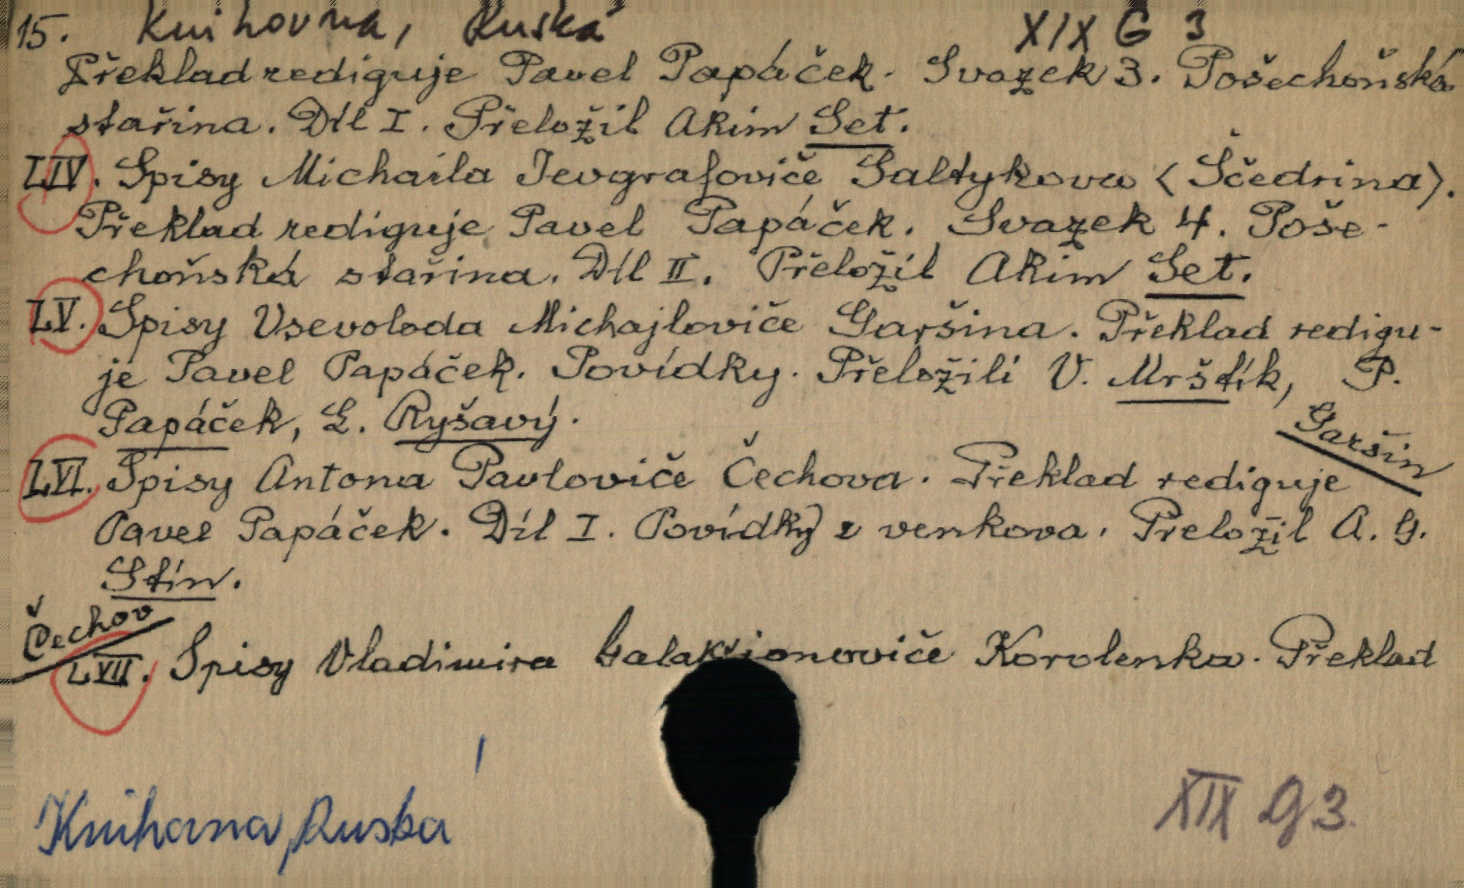 15. Knihovna, Ruská XIX G 3
Překlad rediguje Pavel Papáček. Svazek 3. Pošechoňská
stařina. Díl I. Přeložil Akim Set.
LIV. Spisy Michaila Jevgrafoviče Saltykova (Ščedrina).
Překlad rediguje Pavel Papáček. Svazek 4. Poše-
choňská stařina. Díl II. Přeložil Akim Set.
LV. Spisy Vsevoloda Michajloviče Garšina. Překlad redigu-
je Pavel Papáček. Povídky. Přeložili V. Mrštík, P.
Papáček, L. Ryšavý.
Garšin
LVI. Spisy Antona Pavloviče Čechova. Překlad rediguje
Pavel Papáček. Díl I. Povídky z venkova. Preložil A. G.
Stín.
Čechov
LVII. Spisy Vladimira Galaktionoviče Korolenka. Překlad
Knihovna, Ruská
XIX G 3.